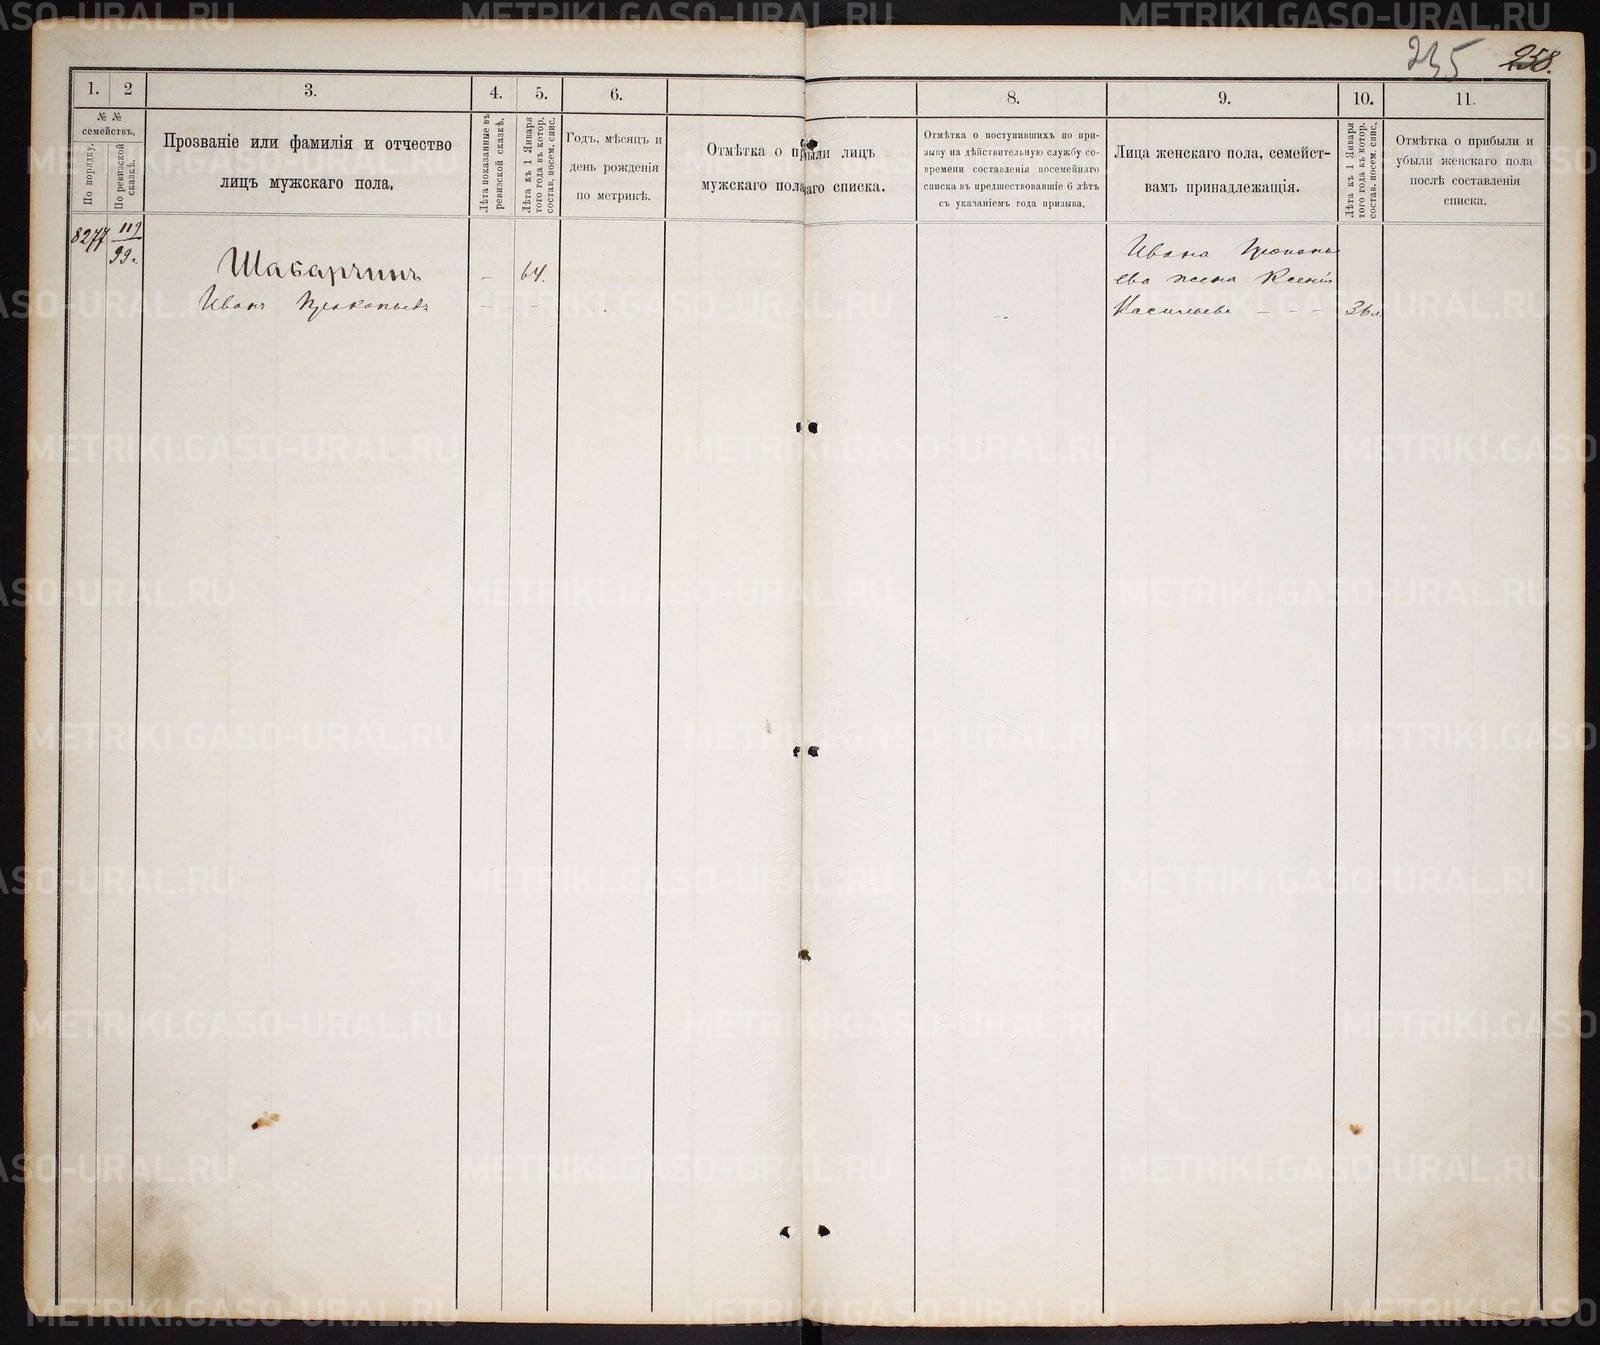 235 258.
1. 2 3. 4. 5. 6. 8. 9. 10. 11.
№ №
семействъ.
По порядку.
По ревизской
сказкѣ.
Прозваніе или фамилія и отчество
лицъ мужскаго пола.
Лѣта показанные въ
ревизской сказкѣ.
Лѣта къ 1 Января
того года въ котор.
состав. посем. спис.
Годъ, мѣсяцъ и
день рожденія
по метрикѣ.
Отмѣтка о
были лицъ
мужскаго пола
списка.
Отмѣтка о поступившихъ по при-
зыву на дѣйствительную службу со-
времени составленія посемейнаго
списка въ предшествовавшіе 6 лѣтъ
съ указаніемъ года призыва.
Лица женскаго пола, семейст-
вамъ принадлежащія.
Лѣта къ 1 Января
того года въ котор.
состав. посем. спис.
Отмѣтка о прибыли и
убыли женскаго пола
послѣ составленія
списка.
8277 119
99
Шабарчинъ - 64.
Иванъ Прокопьевъ - -
Ивана Прокопь
ева жена Ксенія
Васильева - - - 36 л.
METRIKI.GASO-URAL.RU